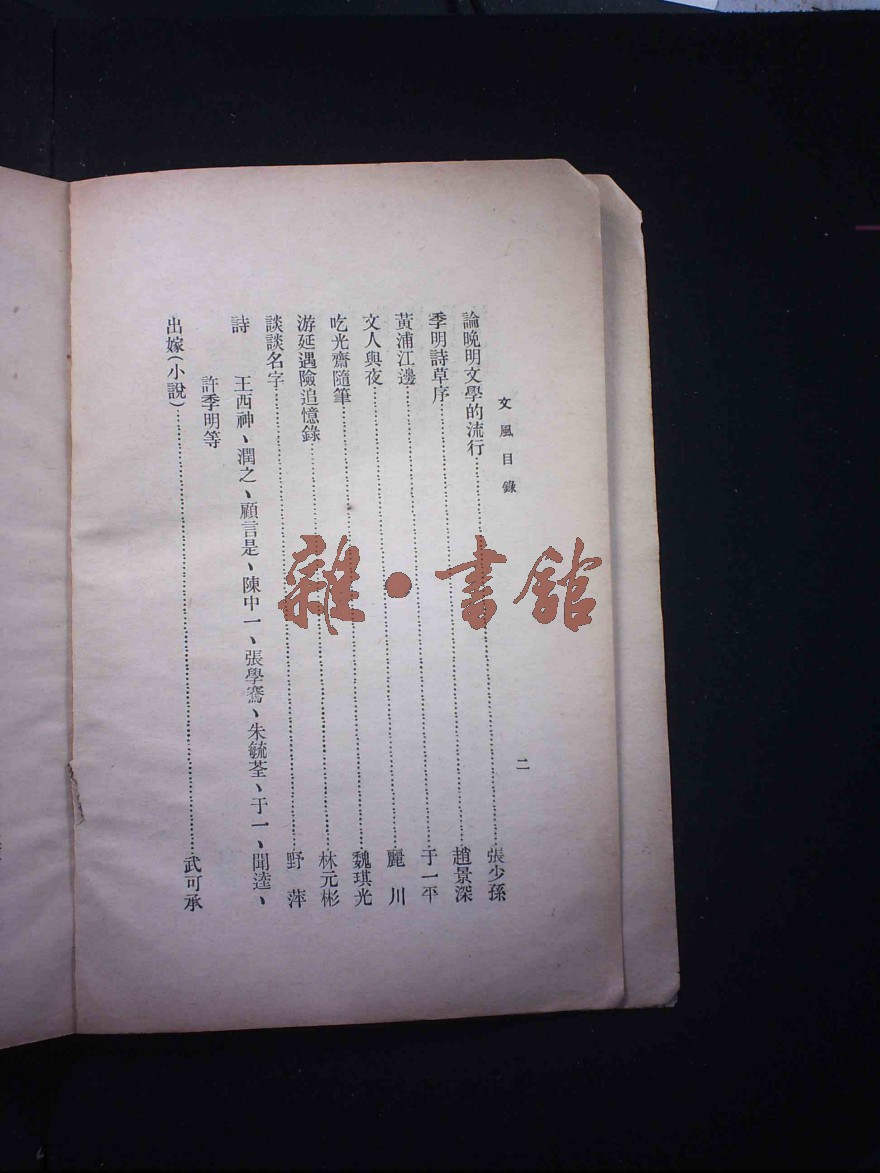 文風目錄 二
論晚明文學的流行……張少孫
季明詩草序……趙景深
黃浦江邊……于一平
文人與夜……麗川
吃光齋隨筆……魏琪光
游延遇險追憶錄……林元彬
談談名字……野萍
詩 王西神、潤之、顧言是、陳中一、張學騫、朱毓荃、于一、聞逵、
許季明等
出嫁(小說)……武可承
雜·書館